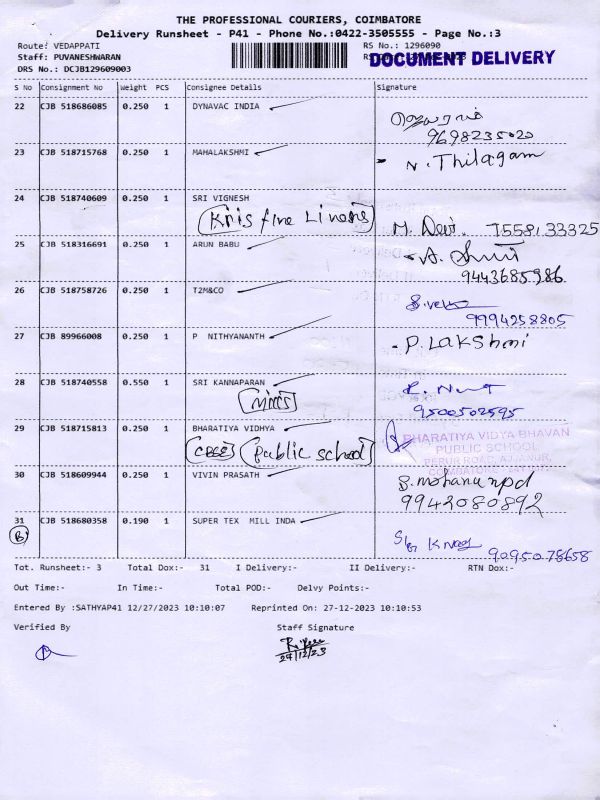 THE PROFESSIONAL COURIERS, COIMBATORE
Delivery Runsheet - P41 - Phone No.:0422-3505555 - Page No.:3
Route: VEDAPPATI
RS No.: 1296090
Staff: PUVANESHWARAN
DOCUMENT DELIVERY
DRS No.: DCJB129609003
S No Consignment No Weight PCS Consignee Details Signature
22 CJB 518686085 0.250 1 DYNAVAC INDIA
9698235020
23 CJB 518715768 0.250 1 MAHALAKSHMI N. Thilagam
24 CJB 518740609 0.250 1 SRI VIGNESH
Kris fine Linens M. Devi. 7558133325
25 CJB 518316691 0.250 1 ARUN BABU
9443685986
26 CJB 518758726 0.250 1 T2M&CO
9994258805
27 CJB 89966008 0.250 1 P NITHYANANTH - P. Lakshmi
28 CJB 518740558 0.550 1 SRI KANNAPARAN
9500502595
29 CJB 518715813 0.250 1 BHARATIYA VIDHYA
CBSE Public school
BHARATIYA VIDYA BHAVAN
PUBLIC SCHOOL
PERUR ROAD, AJJANUR,
COIMBATORE
30 CJB 518609944 0.250 1 VIVIN PRASATH
9942080892
31 CJB 518680358 0.190 1 SUPER TEX MILL INDA
B
9095078658
Tot. Runsheet:- 3 Total Dox:- 31 I Delivery:- II Delivery:- RTN Dox:-
Out Time:- In Time:- Total POD:- Delvy Points:-
Entered By :SATHYAP41 12/27/2023 10:10:07 Reprinted On: 27-12-2023 10:10:53
Verified By Staff Signature